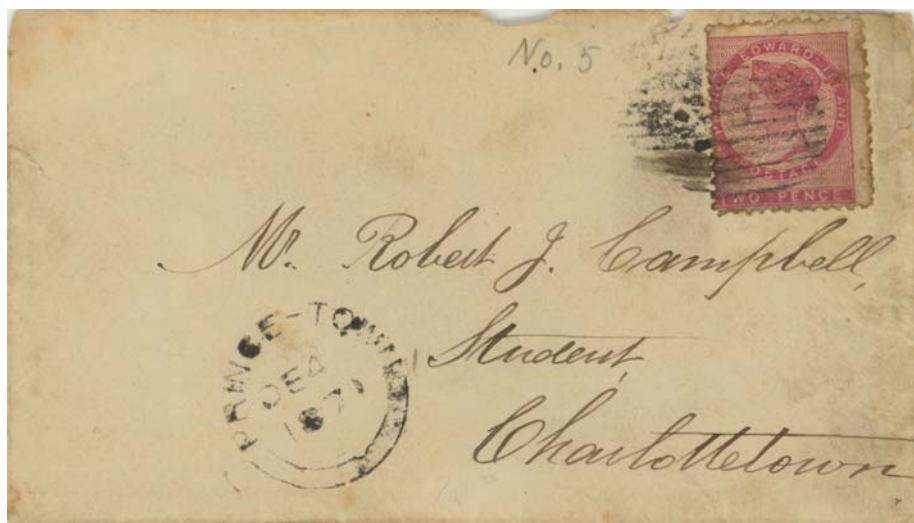 No. 5
PRINCE EDWARD ISLAND
POSTAGE
TWO PENCE
Mr. Robert J. Campbell,
Student,
Charlottetown
PRINCE-TOWN